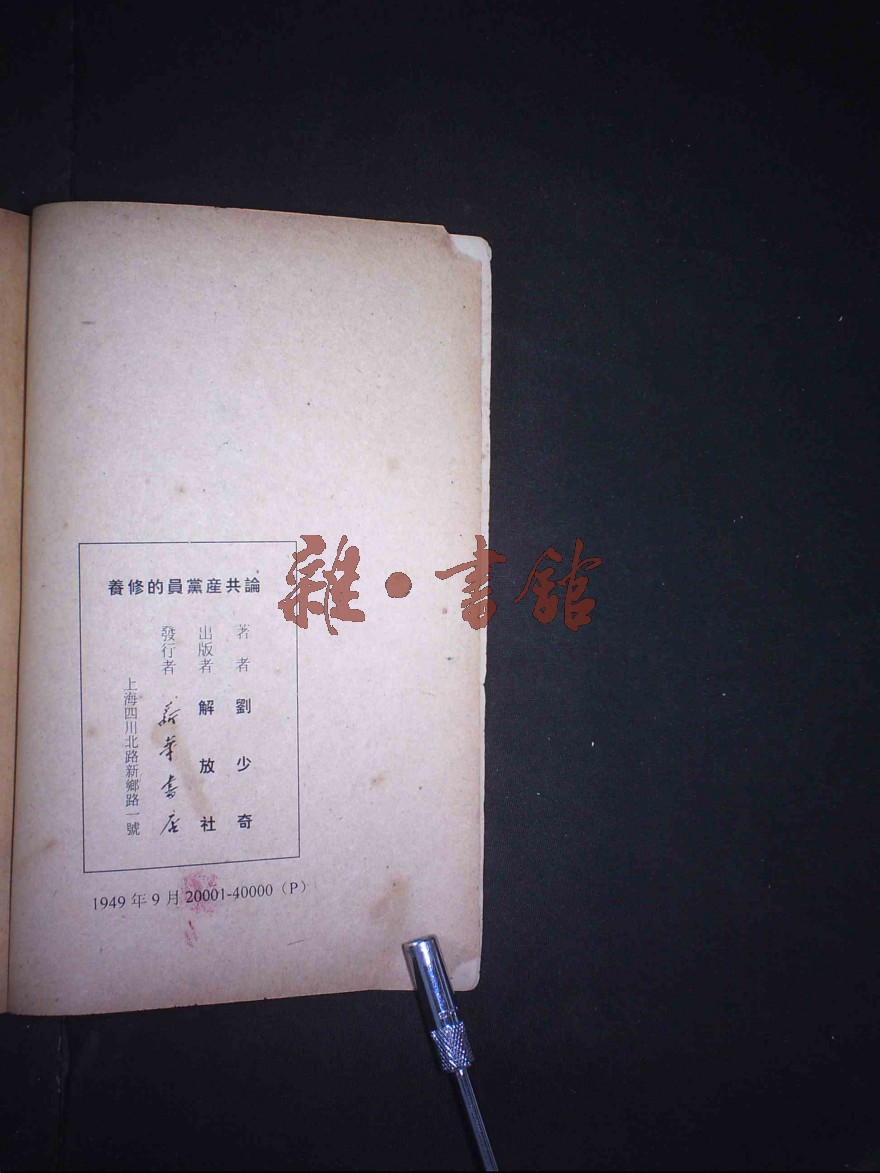 論共産黨員的修養
著者 劉少奇
出版者 解放社
發行者 新華書店
上海四川北路新鄉路一號
1949年9月20001-40000(P)
雜·書館